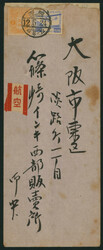 大阪市東區
淡路町一丁目
篠崎インキ西部販賣所
御中
航空